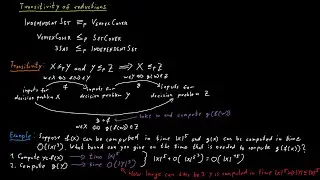 Transitivity of reductions
INDEPENDENT SET ≤p VERTEX COVER
VERTEX COVER ≤p SET COVER
3SAT ≤p INDEPENDENT SET
Transitivity: X ≤p Y and Y ≤p Z ⇒ X ≤p Z
inputs for decision problem X
inputs for decision problem Y
inputs for decision problem Z
g∘f
take w and compute g(f(w))
Example: Suppose f(x) can be computed in time |x|⁵ and g(x) can be computed in time
O(|x|³). What bound can you give on the time that is needed to compute g(f(x))?
1. Compute y=f(x) → time |x|⁵
2. Compute g(y) → time O(|y|³)
How large can |y| be? y is computed in time